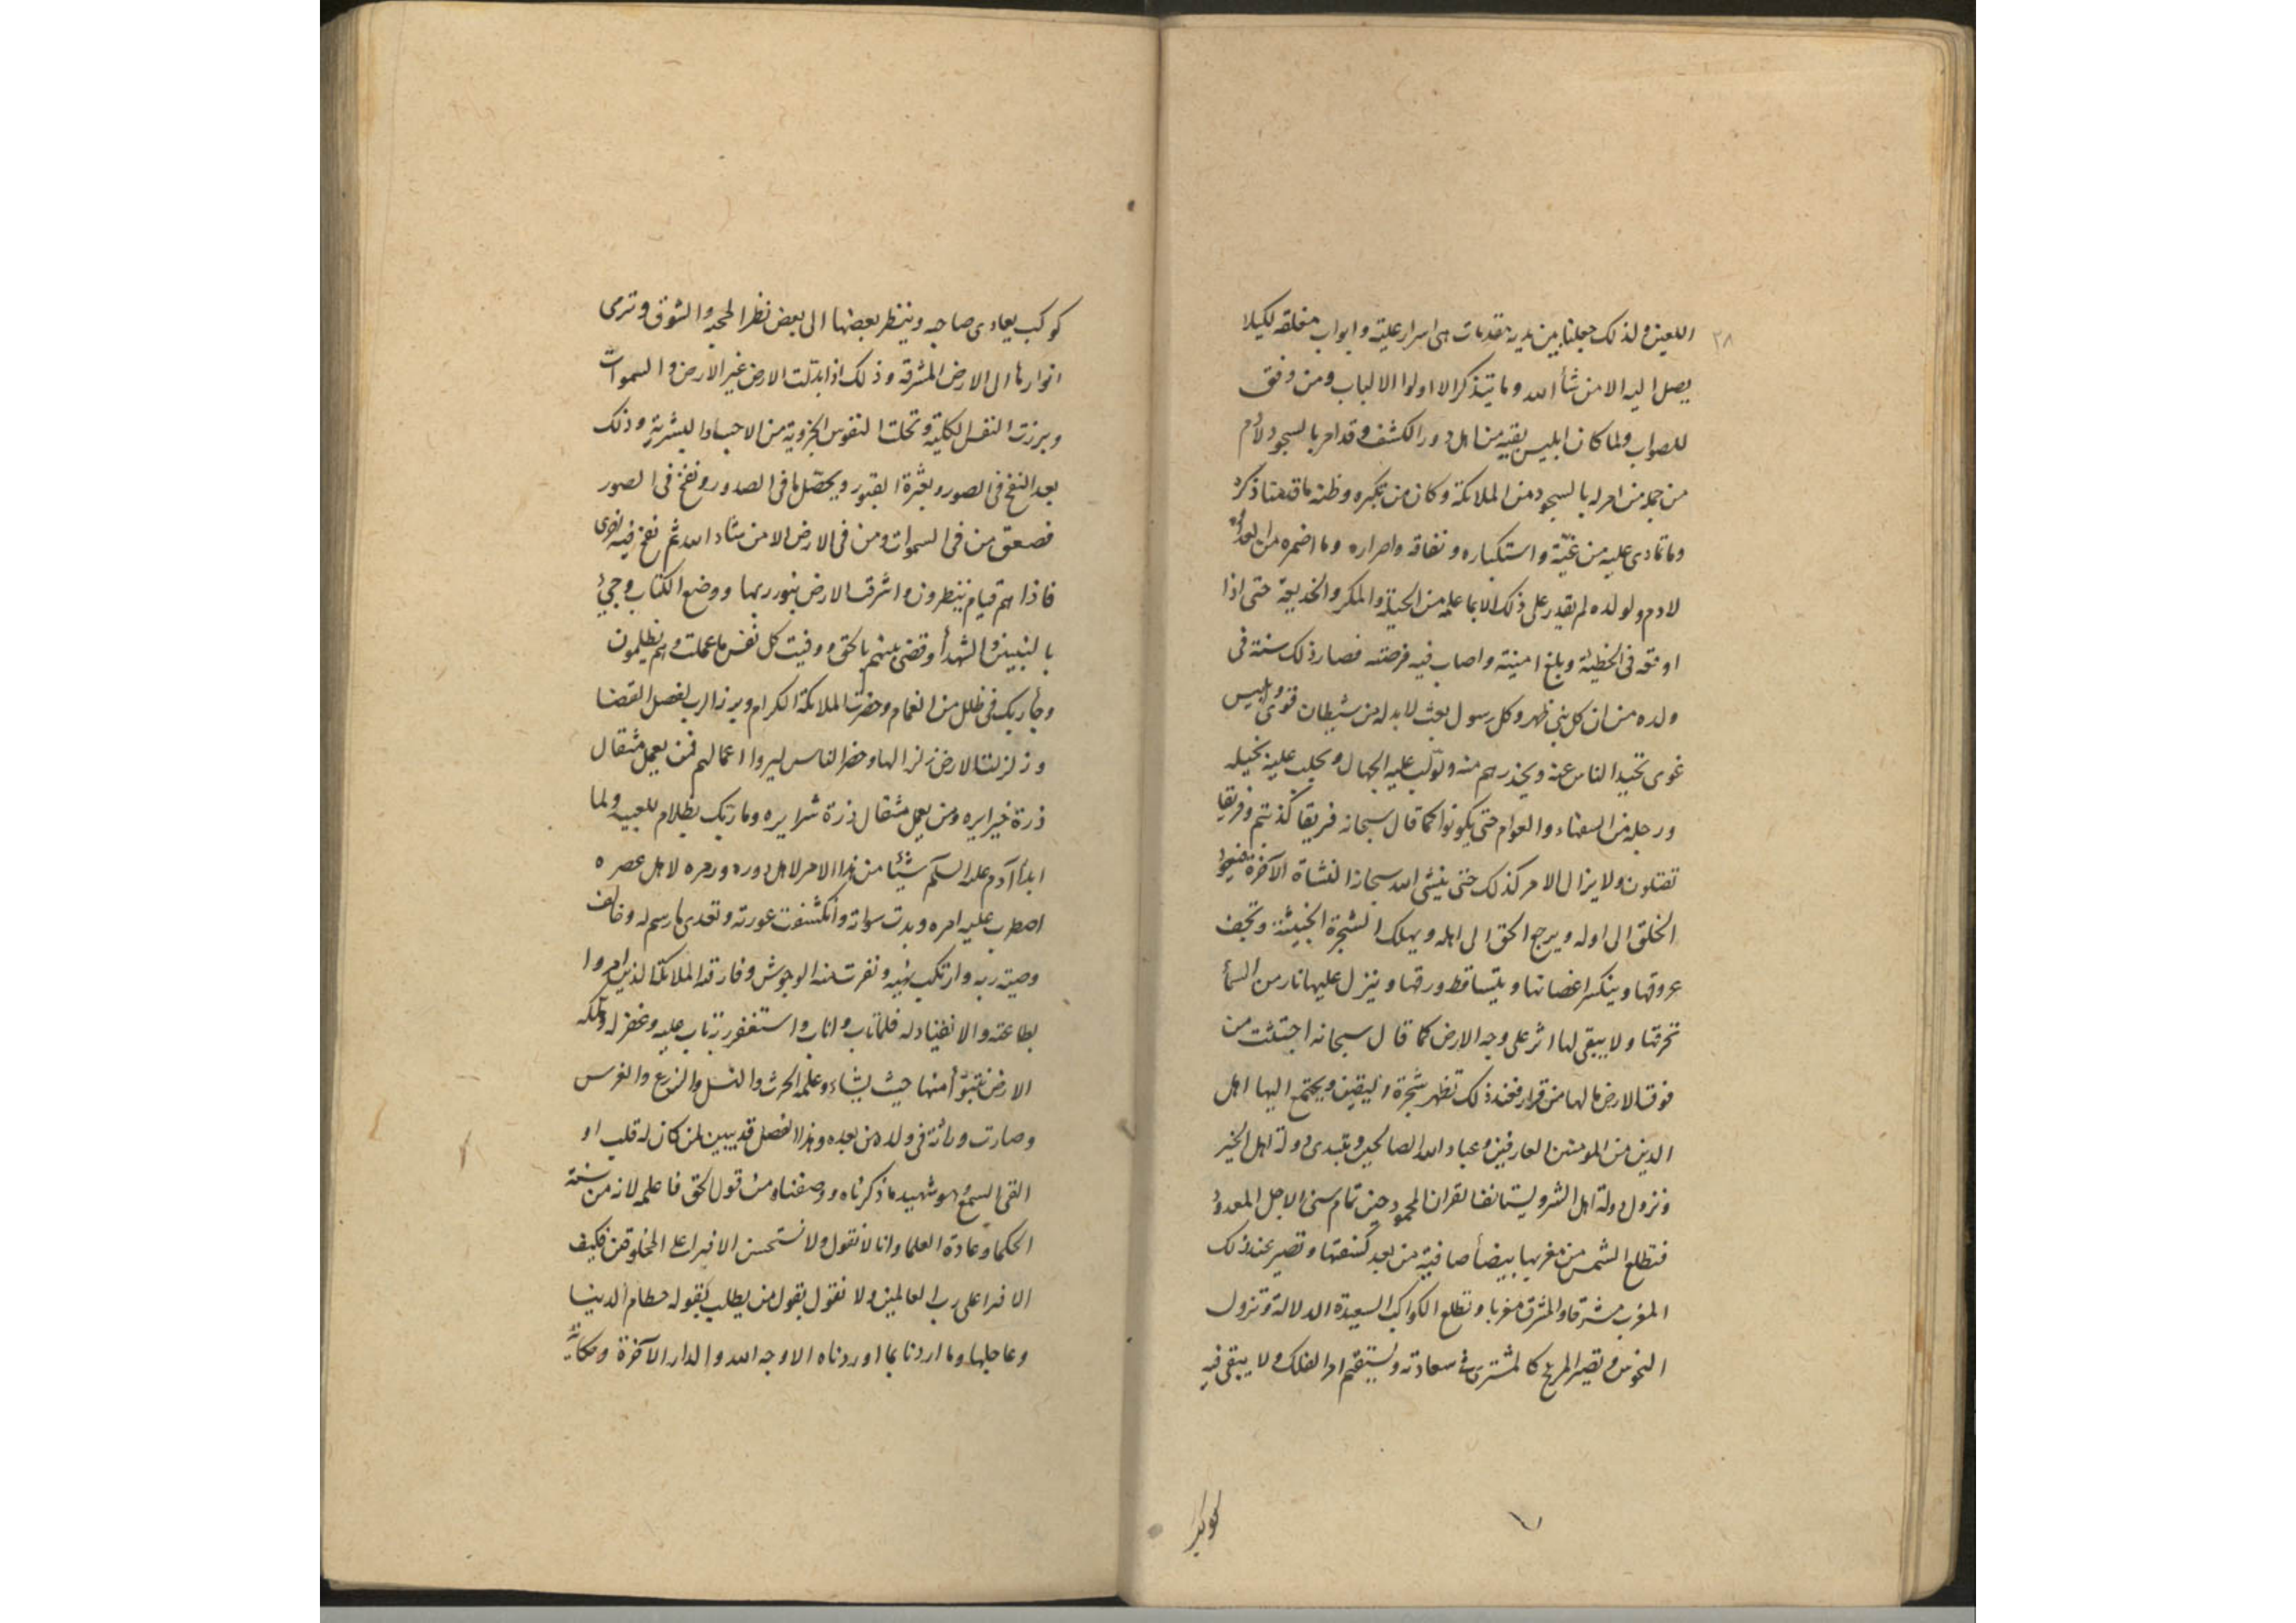 ٢٨
اللعين ولذلك جعلنا بين يديه مقدمات هى اسرار علية وابواب مغلقة لكيلا
يصل اليه الا من شأ الله وما يتذكر الا اولوا الالباب ومن وفق
للصواب ولما كان ابليس بقية من اهل دور الكشف وقد امر بالسجود لادم
من جملة من امر له بالسجود من الملائكة وكان من تكبره وظنه ما قدمنا ذكره
وما تمادى عليه من غيّه واستكباره ونفاقه واصراره وما اضمره من العداوة
لادم ولولده لم يقدر على ذلك الا بما علمه من الحيلة والمكر والخديعة حتى اذا
اوقعه فى الخطيئة وبلغ امنيته واصاب فيه فرصته فصار ذلك سنة فى
ولده من ان كل نبى ظهر وكل رسول بعث لا بد له من شيطان قوى وابليس
غوى تحيد الناس عنه ويحذرهم منه ويؤلب عليه الجهال ويجلب عليه بخيله
ورجله من السفهاء والعوام حتى يكونوا كما قال سبحانه فريقا كذبتم وفريقا
تقتلون ولا يزال الامر كذلك حتى ينشئ الله سبحانه النشاة الآخرة فيعود
الخلق الى اوله ويرجع الحق الى اهله ويهلك الشجرة الخبيثة وتجف
عروقها وينكسر اغصانها ويتساقط ورقها وينزل عليها نار من السمأ
تحرقها ولا يبقى لها اثر على وجه الارض كما قال سبحانه اجتثت من
فوق الارض ما لها من قرار فعند ذلك تظهر شجرة اليقين ويجتمع اليها اهل
الدين من المومنين العارفين وعباد الله الصالحين وتبتدى دولة اهل الخير
وتزول دولة اهل الشر ويستانف القران المحمود حين تمام سنى الاجل المعدود
فتطلع الشمس من مغربها بيضأ صافية من بعد كسفتها وتصير عند ذلك
المغرب مشرقا والمشرق مغربا وتطلع الكواكب السعيدة الدلالة وتزول
النحوس وتصير المريخ كالمشترى فى سعادته ويستقيم امر الفلك ولا يبقى فيه
كوكب
كوكب يعادى صاحبه وينظر بعضها الى بعض نظر المحبة والشوق وترمى
انوارها الى الارض المشرقة وذلك اذا بدلت الارض غير الارض والسموات
وبرزت النفس الكلية وتخلت النفوس الجزوية من الاجساد البشرية وذلك
بعد النفخ فى الصور وبعثرة القبور ويحصّل ما فى الصدور ونفخ فى الصور
فصعق من فى السموات ومن فى الارض الا من شاء الله ثم نفخ فيه اخرى
فاذا هم قيام ينظرون واشرقت الارض بنور ربها ووضع الكتاب وجئ
بالنبيين والشهدأ وقضى بينهم بالحق ووفيت كل نفس ما عملت وهم يظلمون
وجأ ربك فى ظلل من الغمام وحضرت الملائكة الكرام وبرز الرب لفصل القضا
وزلزلت الارض زلزالها وحضر الناس ليروا اعمالهم فمن يعمل مثقال
ذرة خيرا يره ومن يعمل مثقال ذرة شرا يره وما ربك بظلام للعبيد ولما
ابدأ آدم عليه السلم شيئا من هذا الامر لاهل دوره ورمزه لاهل عصره
اضطرب عليه امره وبدت سواته وانكشفت عورته وتعدى ما رسم له وخالف
وصية ربه وارتكب نهيه ونفرت منه الوحوش وفارقه الملائكة الذين امروا
بطاعته والانقياد له فلما تاب واناب واستغفر ربه تاب عليه وغفر له وملكه
الارض يتبوّأ منها حيث يشاء وعلمه الحرث والنسل والزرع والغرس
وصارت وراثة فى ولده من بعده وهذا الفصل قد يبين لمن كان له قلب او
القى السمع وهو شهيد ما ذكرناه ووصفناه من قول الحق فاعلمه لانه من سنة
الحكما وعادة العلما وانا لا نقول ولا نستحسن الافتراء على المخلوقين فكيف
الافترا على رب العالمين ولا نقول بقول من يطلب بقوله حطام الدنيا
وعاجلها وما اردنا بما اوردناه الا وجه الله والدار الآخرة